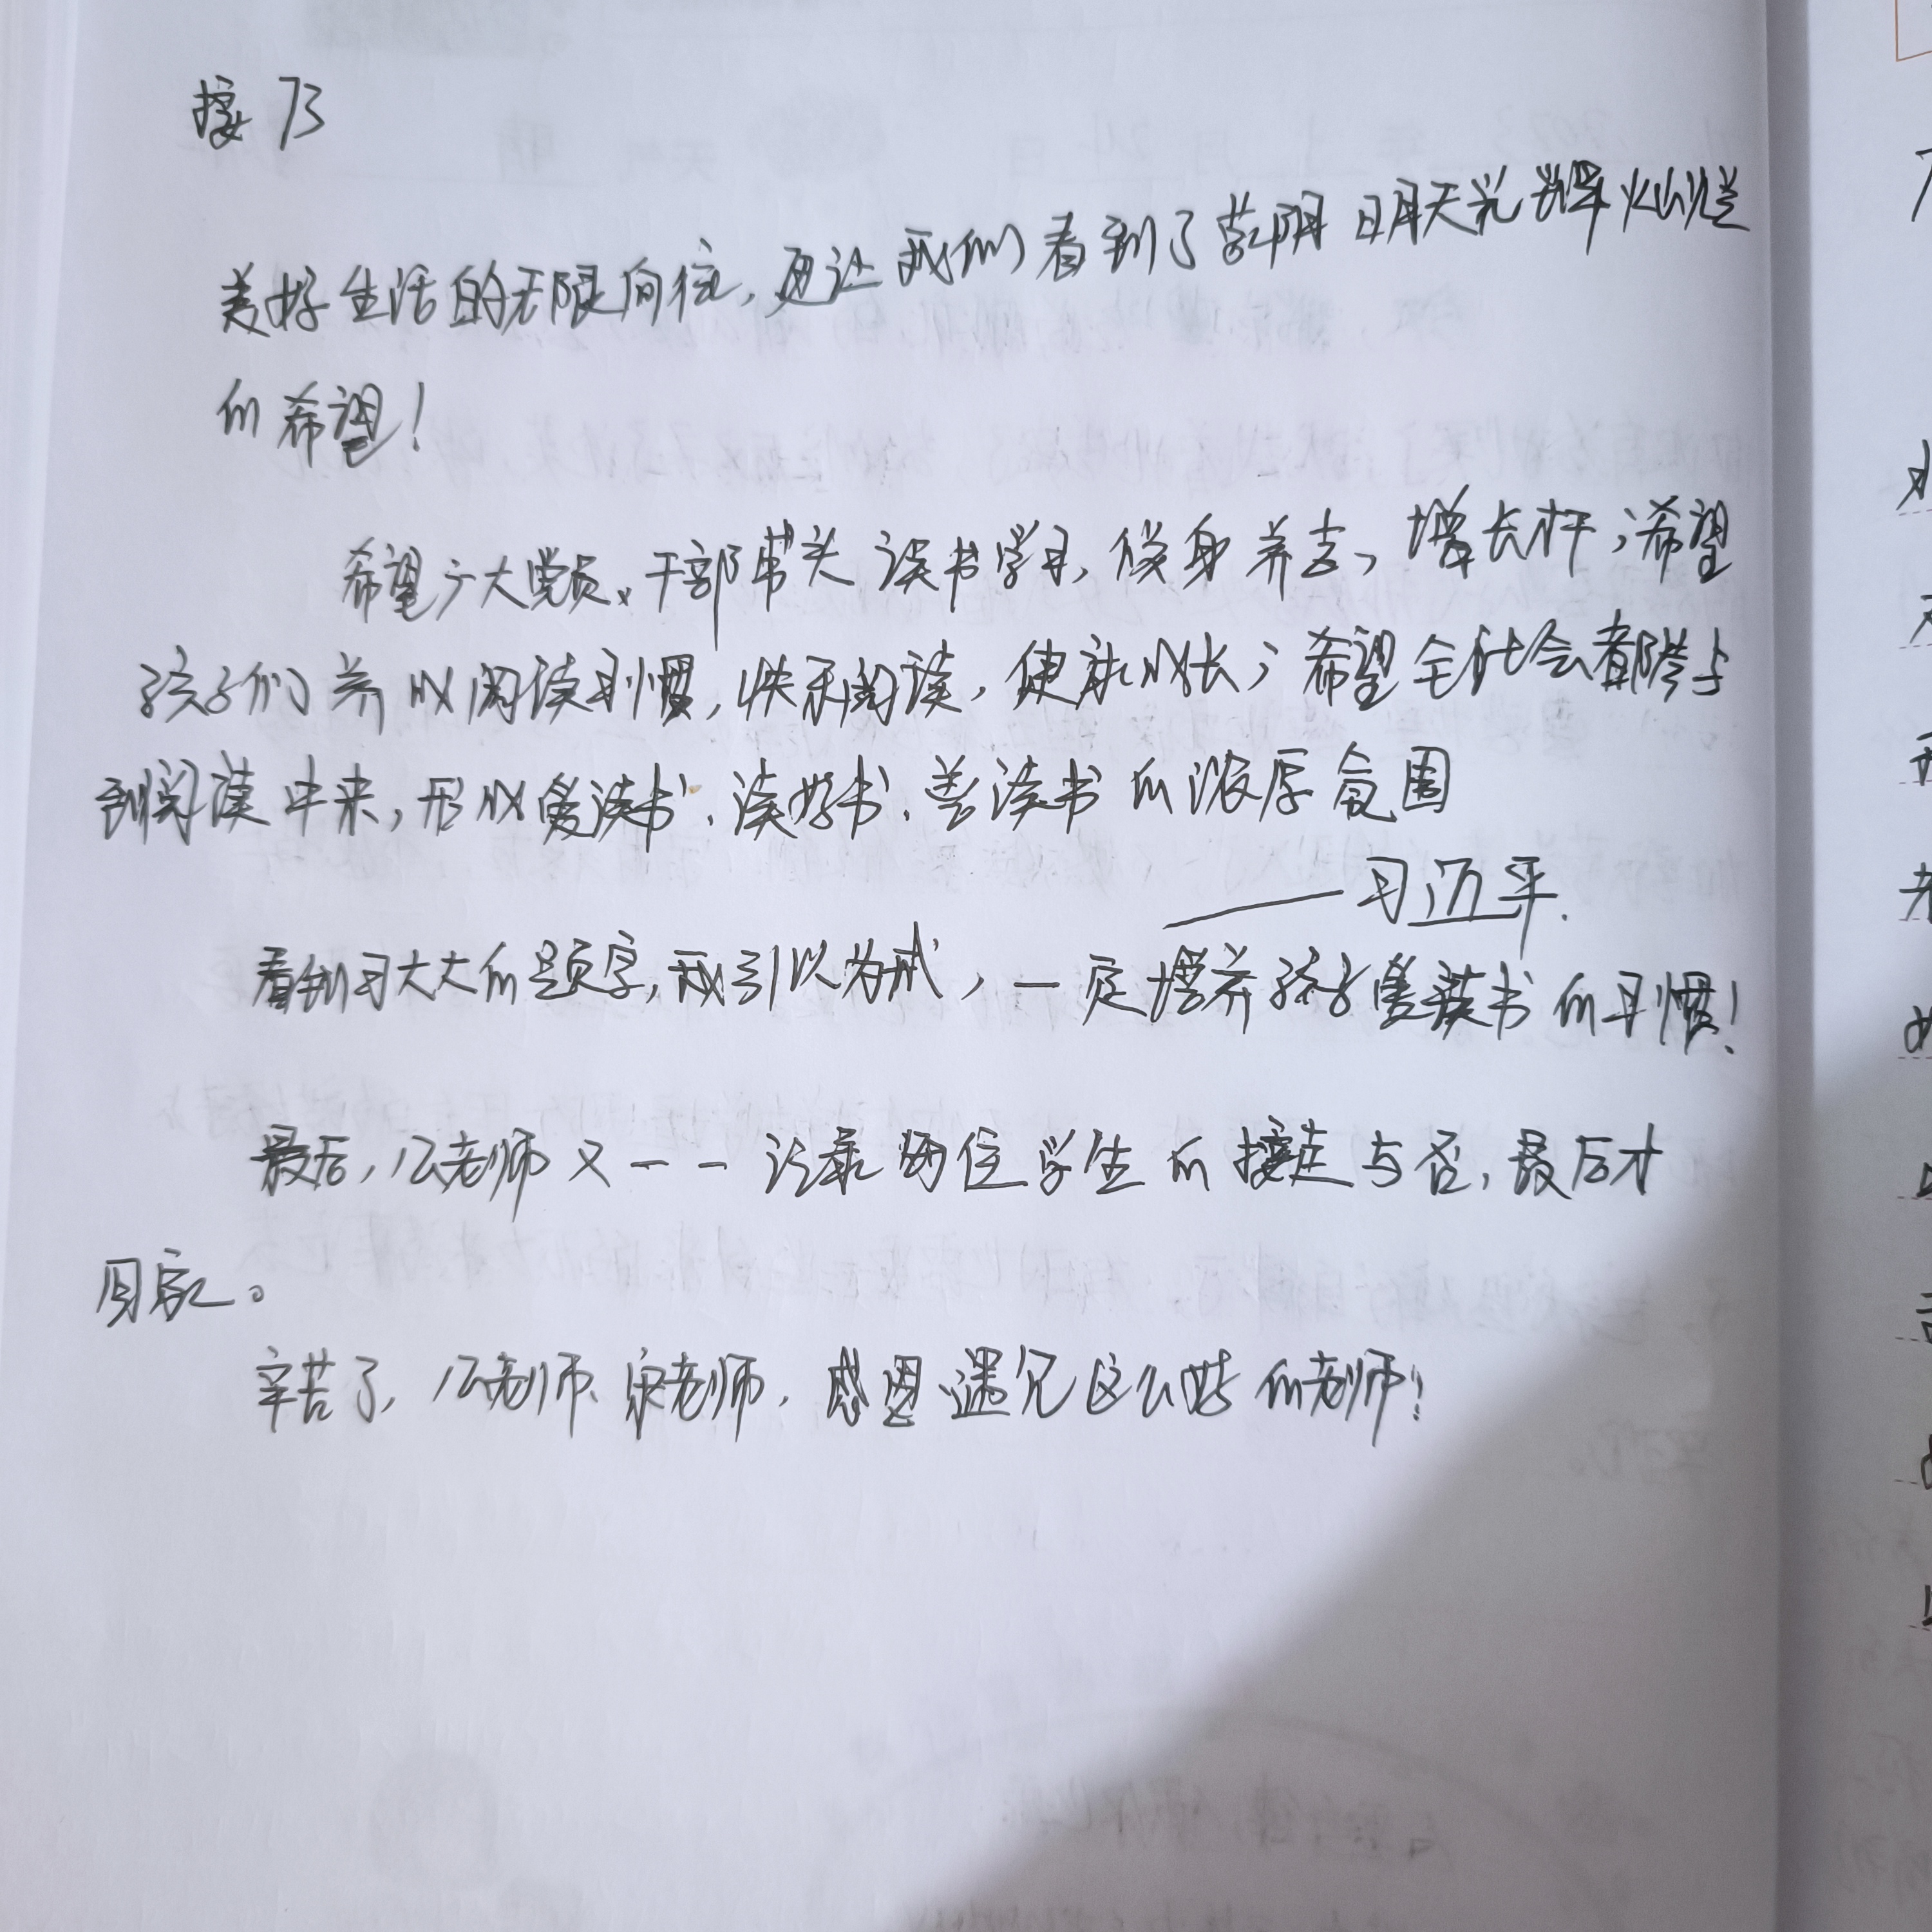 接 73
美好生活的无限向往,更让我们看到了蒙阴日月天光辉灿烂
的希望!
希望广大党员、干部带头读书学习,修身养志,增长才干;希望
孩子们养成阅读习惯,快乐阅读,健康成长;希望全社会都参与
到阅读中来,形成爱读书、读好书、善读书的浓厚氛围
——习近平.
看到习大大的题字,我引以为戒,一定增养孩子爱读书的习惯!
最后,公老师又一一记录每位学生的接走与否,最后才
回家。
辛苦了,公老师、宋老师,感恩遇见这么好的老师!